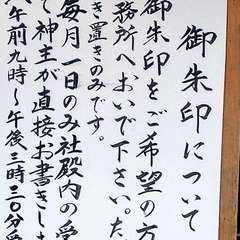 御朱印について
御朱印をご希望の方
務所へおいで下さい。た
き置きのみです。
毎月一日のみ社殿内の受
て神主が直接お書きし
午前九時〜午後三時三〇分